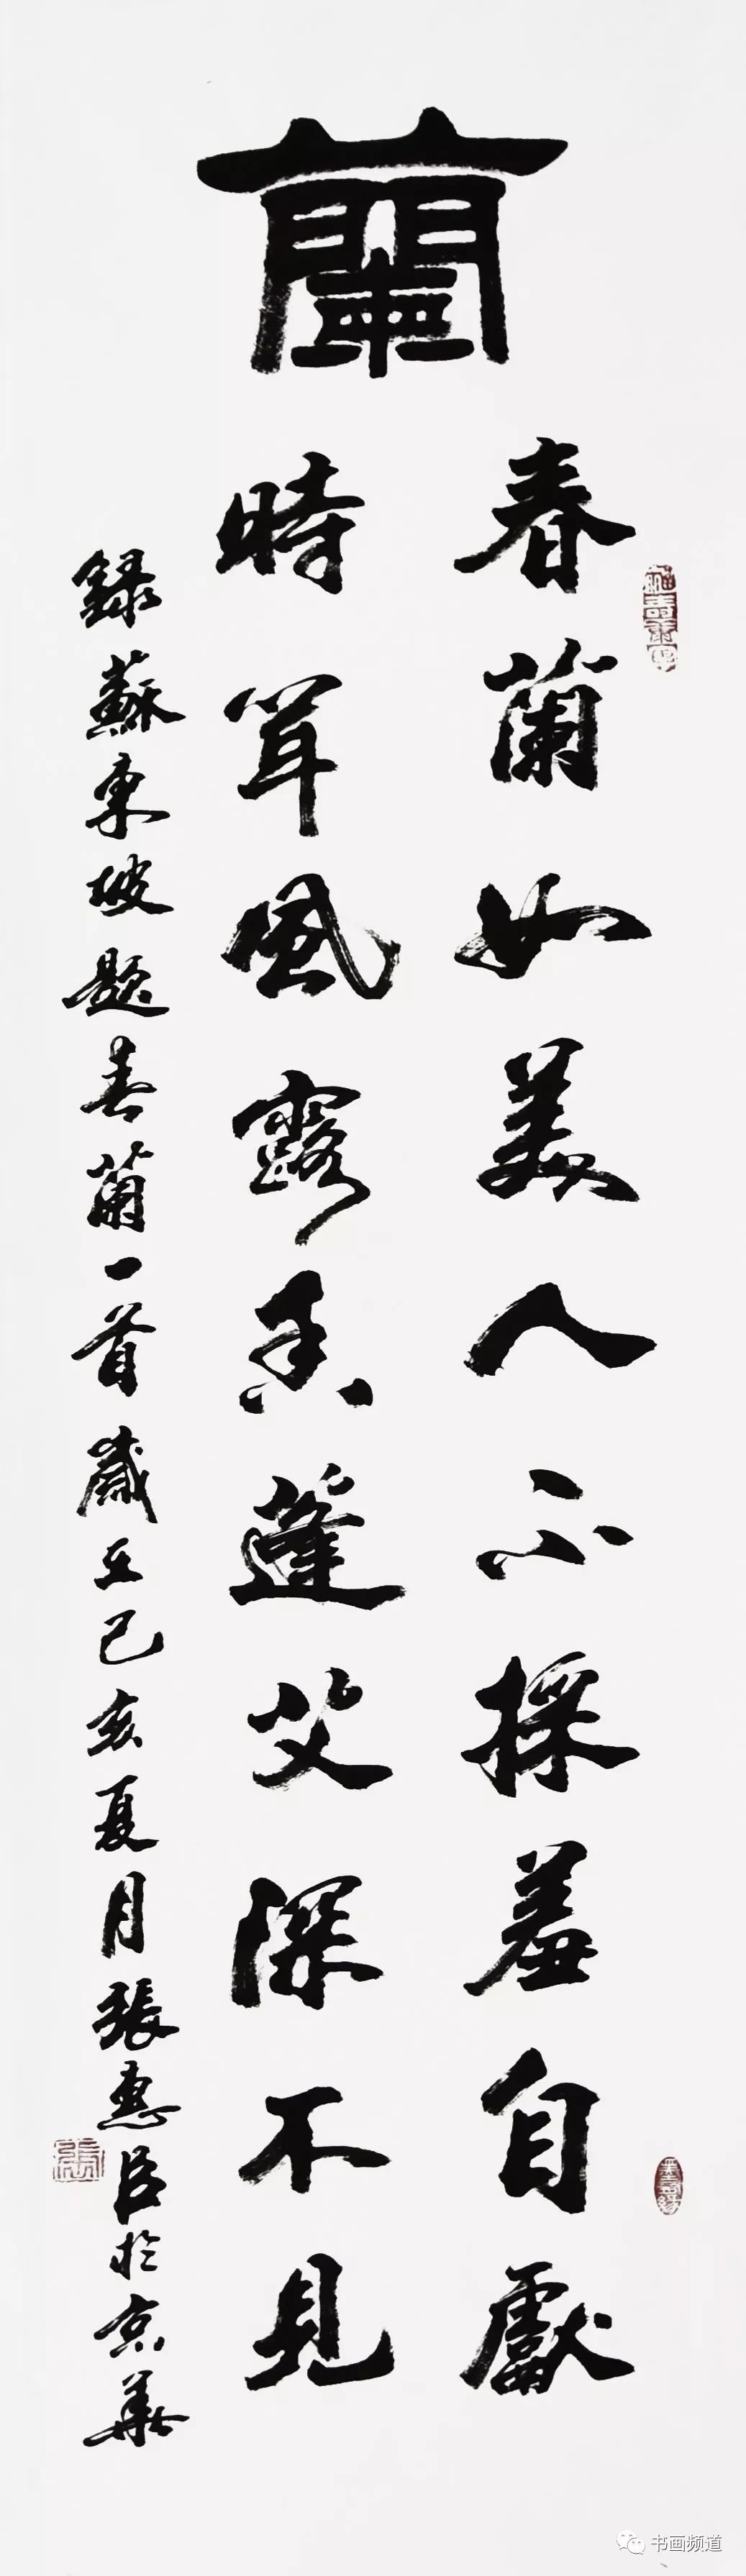 蘭
春蘭如美人不採羞自獻
時聞風露香蓬艾深不見
錄蘇東坡題春蘭一首歲在己亥夏月張惠臣於京華
張
书画频道